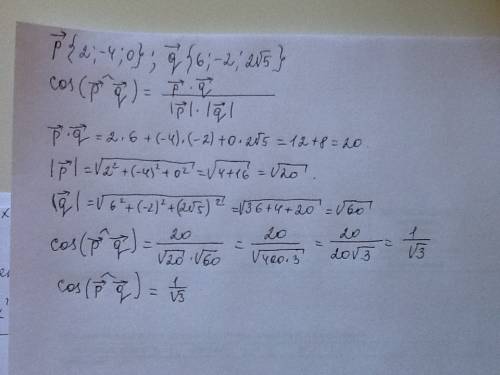 p⃗ {2; -4; 0} ; q⃗ {6; -2; 2√5}
cos(p⃗ ^ q⃗) = p⃗ · q⃗ / |p⃗| · |q⃗|
p⃗ · q⃗ = 2 · 6 + (-4) · (-2) + 0 · 2√5 = 12 + 8 = 20.
|p⃗| = √(2² + (-4)² + 0²) = √(4+16) = √20 .
|q⃗| = √(6² + (-2)² + (2√5)²) = √(36 + 4 + 20) = √60
cos(p⃗ ^ q⃗) = 20 / √20 · √60 = 20 / √(400 · 3) = 20 / 20√3 = 1 / √3
cos(p⃗ ^ q⃗) = 1 / √3